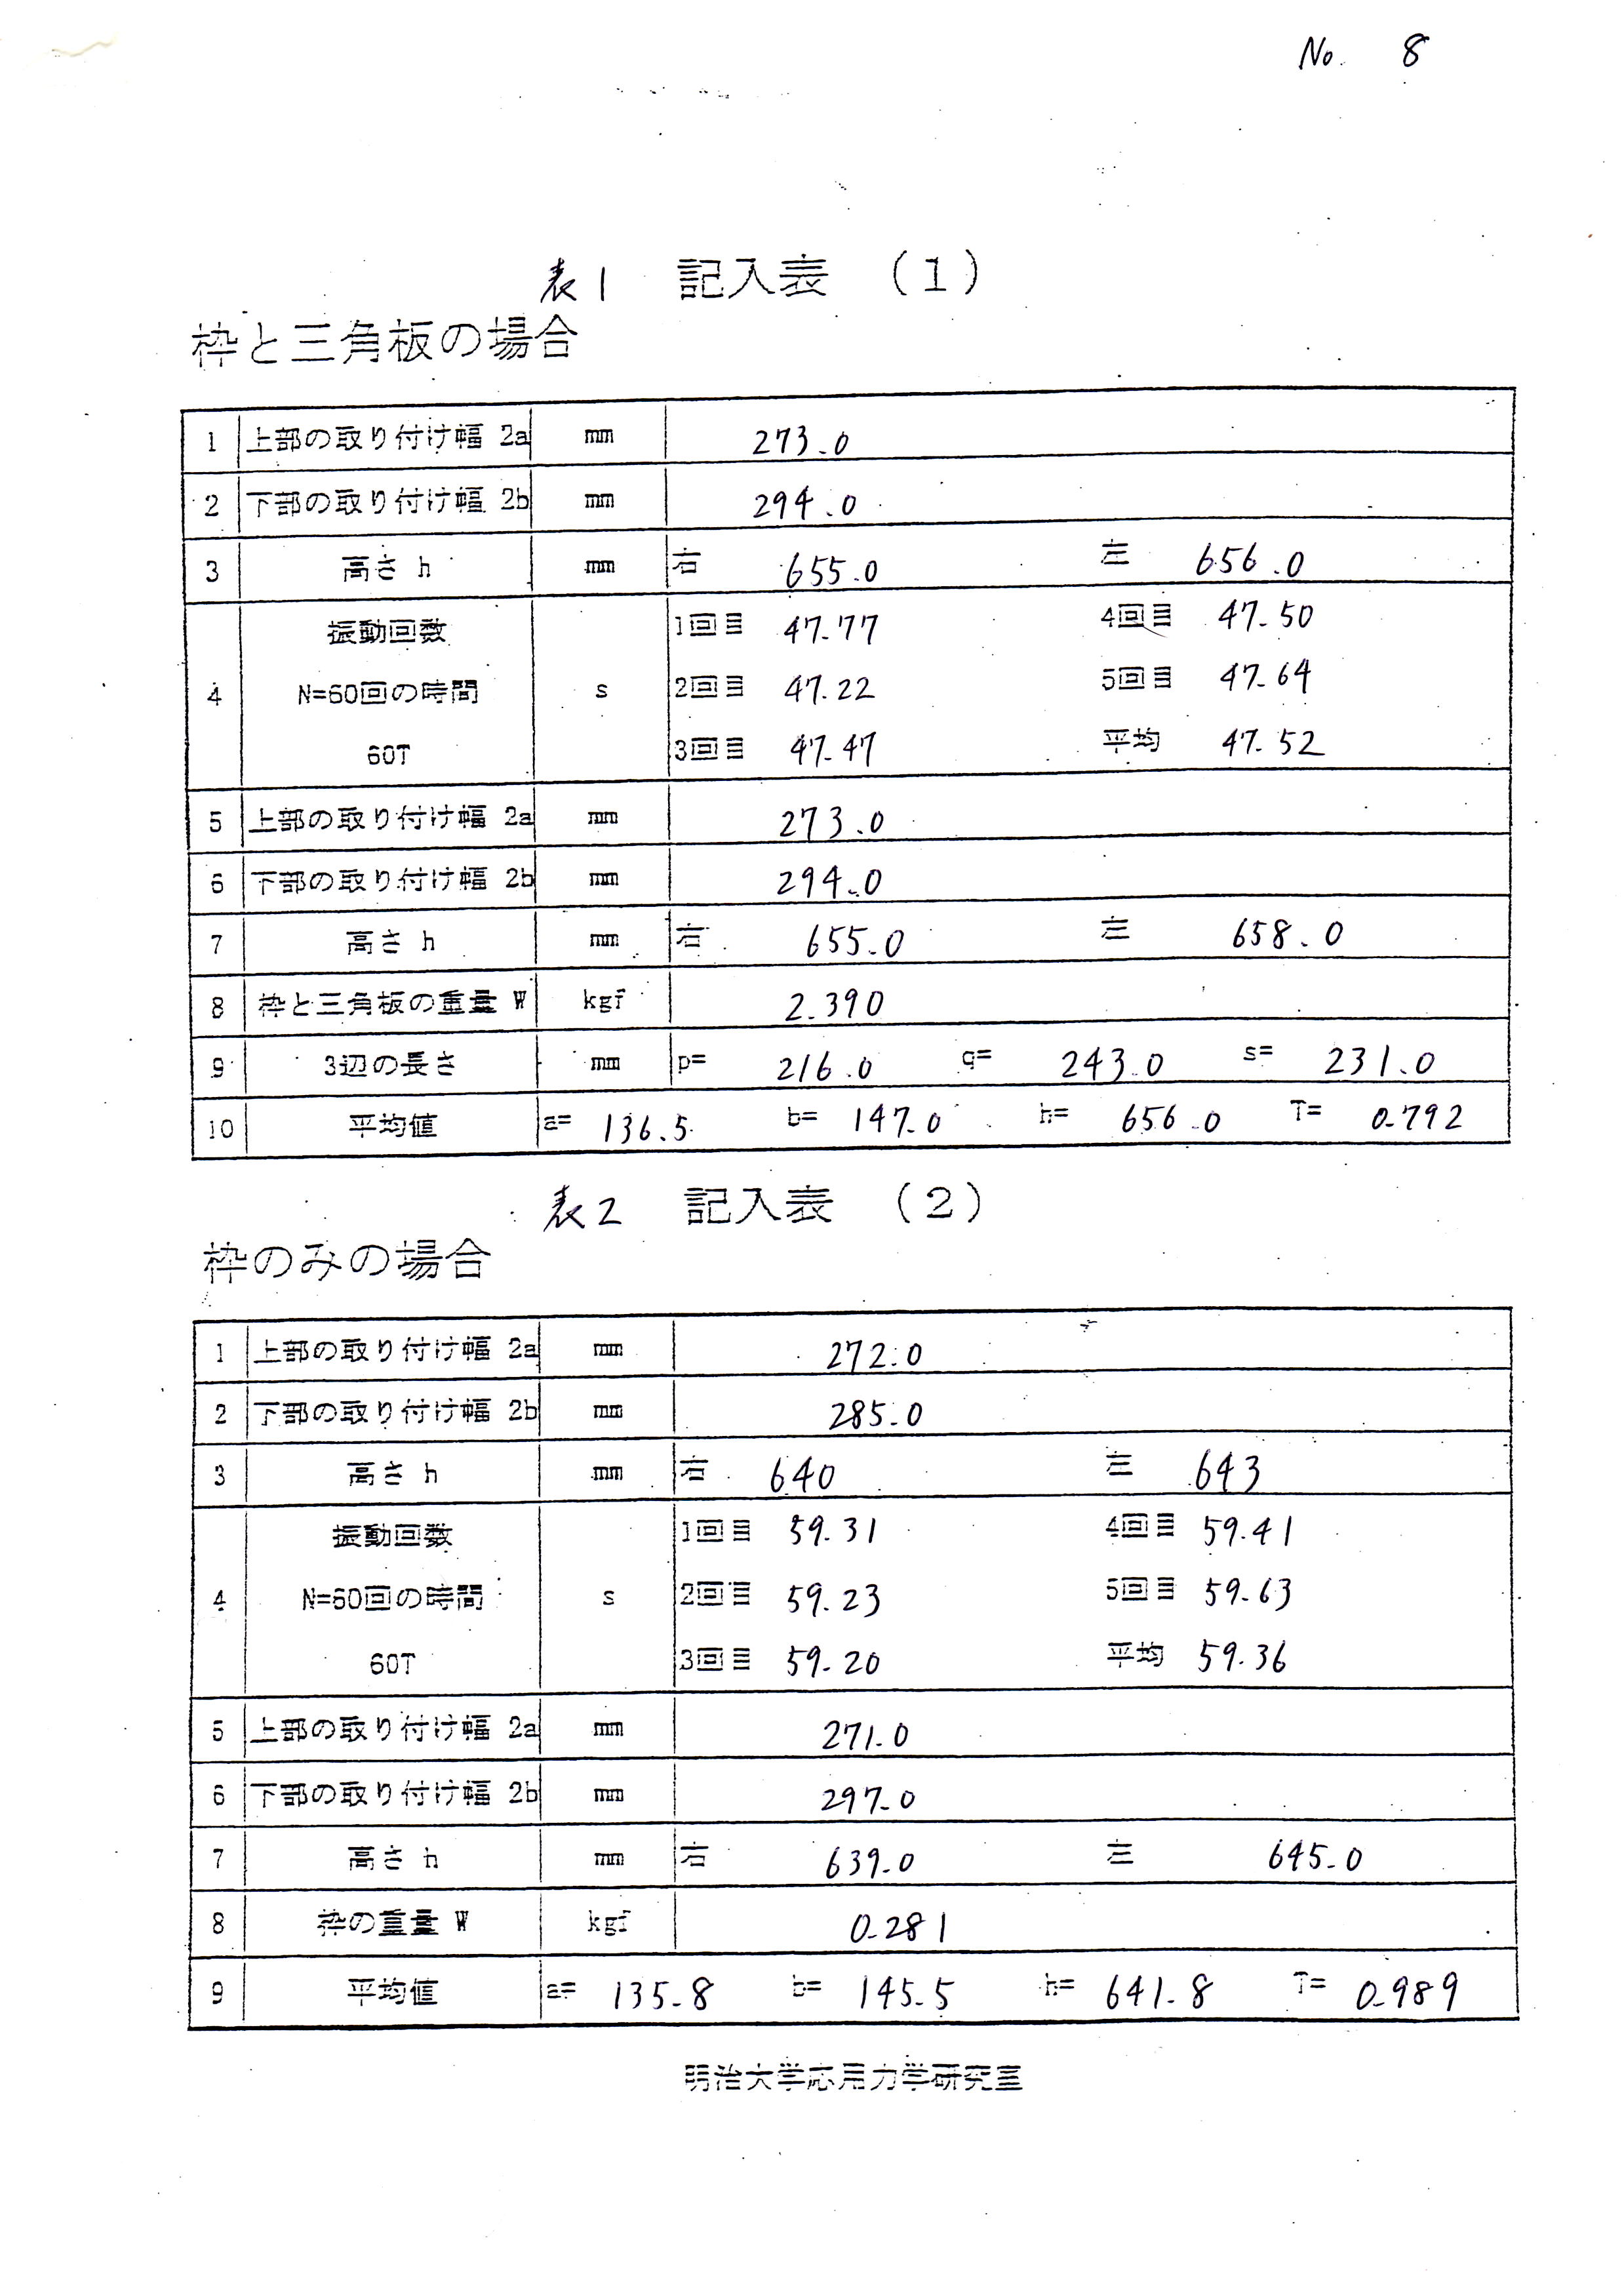 No. 8
表1 記入表 (1)
枠と三角板の場合
1 上部の取り付け幅 2a mm 273.0
2 下部の取り付け幅 2b mm 294.0
3 高さ h mm 右 655.0 左 656.0
振動回数 1回目 47.77 4回目 47.50
4 N=60回の時間 s 2回目 47.22 5回目 47.64
60T 3回目 47.47 平均 47.52
5 上部の取り付け幅 2a mm 273.0
6 下部の取り付け幅 2b mm 294.0
7 高さ h mm 右 655.0 左 658.0
8 枠と三角板の重量 W kgf 2.390
9 3辺の長さ mm p= 216.0 q= 243.0 s= 231.0
10 平均値 a= 136.5 b= 147.0 h= 656.0 T= 0.792
表2 記入表 (2)
枠のみの場合
1 上部の取り付け幅 2a mm 272.0
2 下部の取り付け幅 2b mm 285.0
3 高さ h mm 右 640 左 643
振動回数 1回目 59.31 4回目 59.41
4 N=60回の時間 s 2回目 59.23 5回目 59.63
60T 3回目 59.20 平均 59.36
5 上部の取り付け幅 2a mm 271.0
6 下部の取り付け幅 2b mm 297.0
7 高さ h mm 右 639.0 左 645.0
8 枠の重量 W kgf 0.281
9 平均値 a= 135.8 b= 145.5 h= 641.8 T= 0.989
明治大学応用力学研究室